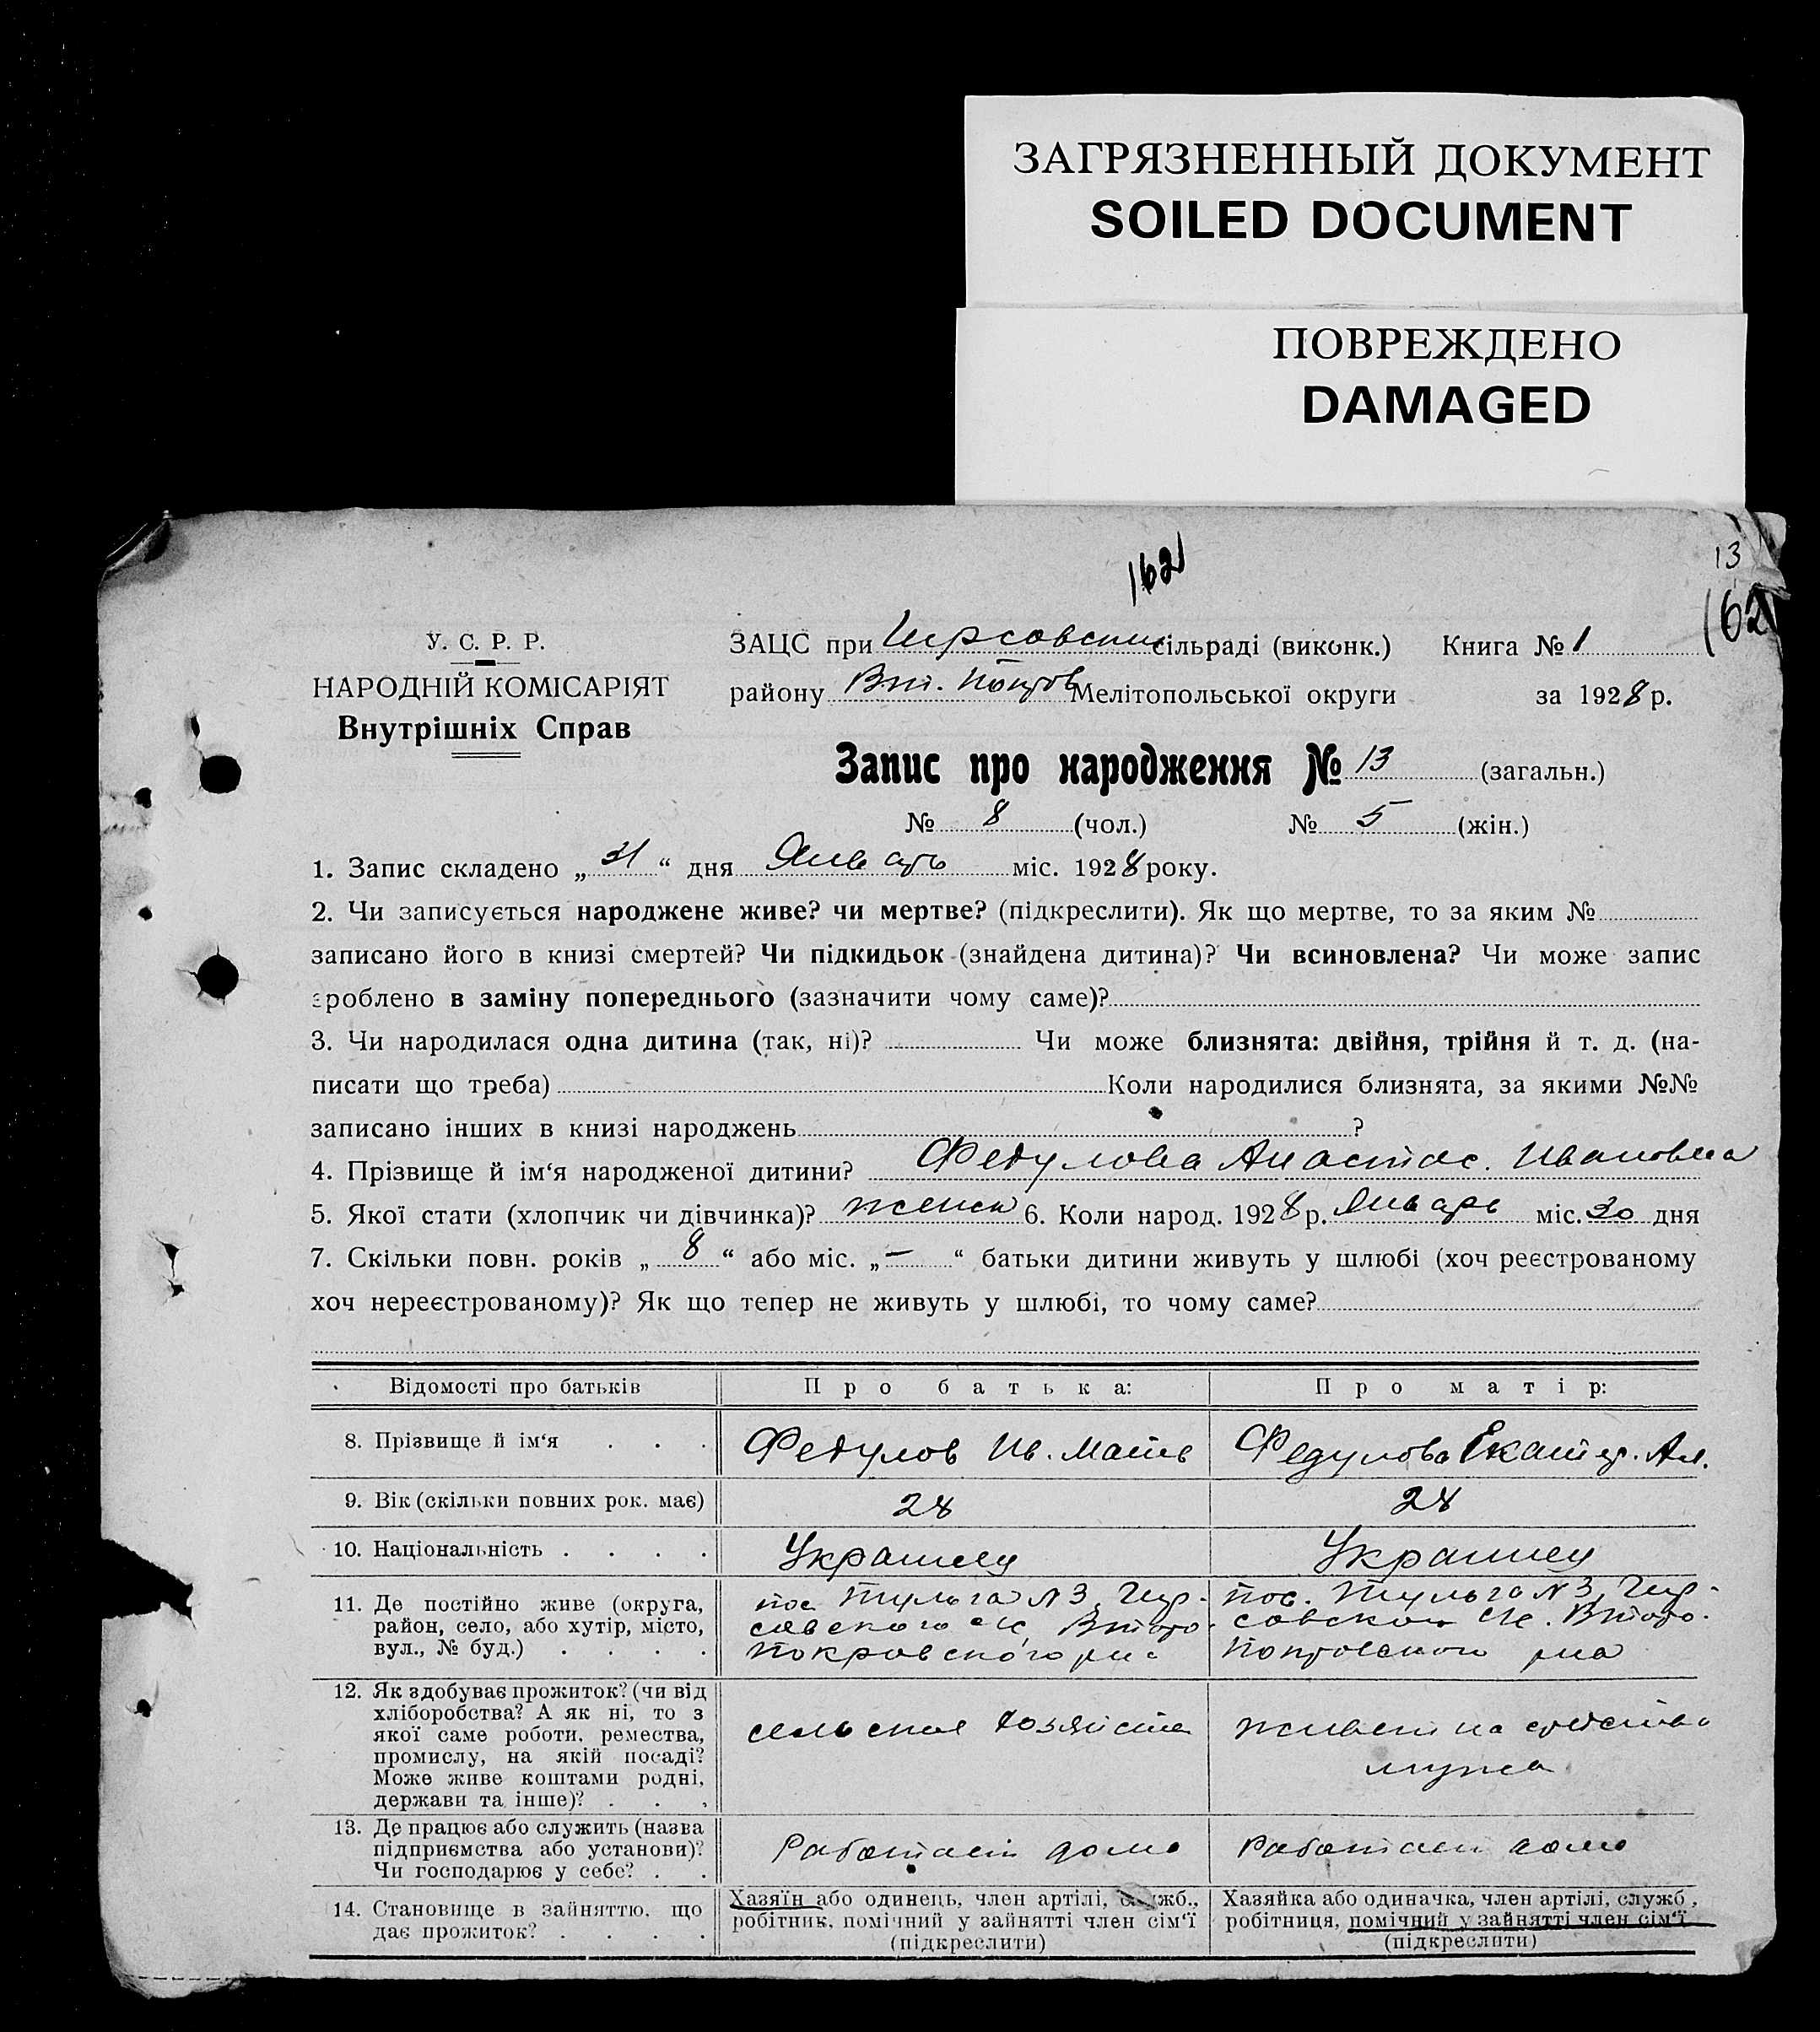 ЗАГРЯЗНЕННЫЙ ДОКУМЕНТ
SOILED DOCUMENT
ПОВРЕЖДЕНО
DAMAGED
162
13
162
У. С. Р. Р.
НАРОДНІЙ КОМІСАРІЯТ
Внутрішніх Справ
ЗАЦС при сільраді (виконк.) Книга № 1
району Вт. Мелітопольської округи за 1928 р.
Запис про народження № 13 (загальн.)
№ 8 (чол.) № 5 (жін.)
1. Запис складено „ 31 “ дня Январь міс. 1928 року.
2. Чи записується народжене живе? чи мертве? (підкреслити). Як що мертве, то за яким №
записано його в книзі смертей? Чи підкидьок (знайдена дитина)? Чи всиновлена? Чи може запис
зроблено в заміну попереднього (зазначити чому саме)?
3. Чи народилася одна дитина (так, ні)? Чи може близнята: двійня, трійня й т. д. (на-
писати що треба) Коли народилися близнята, за якими №№
записано інших в книзі народжень ?
4. Прізвище й ім‘я народженої дитини? Федулова Анастас. Ивановна
5. Якої стати (хлопчик чи дівчинка)? женск 6. Коли народ. 1928 р. Январь міс. 30 дня
7. Скільки повн. років „ 8 “ або міс. „ — “ батьки дитини живуть у шлюбі (хоч реєстрованому
хоч нереєстрованому)? Як що тепер не живуть у шлюбі, то чому саме?
Відомості про батьків Про батька: Про матір:
8. Прізвище й ім‘я . . . Федулов Ив. Матв Федулова Екатер. Ал.
9. Вік (скільки повних рок. має) 28 28
10. Національність . . . . Украинец Украинец
11. Де постійно живе (округа,
район, село, або хутір, місто,
вул., № буд.) . . . .
пос. Тульга N 3,
савского с/с, Второ
покровского р-на
пос. Тульга N 3,
савского с/с. Второ-
Покровского р-на
12. Як здобуває прожиток? (чи від
хліборобства? А як ні, то з
якої саме роботи, ремества,
промислу, на якій посаді?
Може живе коштами родні,
держави та інше)? . . .
сельское хозяйство
живет на средства
мужа
13. Де працює або служить (назва
підприємства або установи)?
Чи господарює у себе? . .
Работает дома
Работает дома
14. Становище в зайняттю, що
дає прожиток? . . . .
Хазяїн або одинець, член артілі, служб.,
робітник, помічний у зайнятті член сім‘ї
(підкреслити)
Хазяйка або одиначка, член артілі, служб.,
робітниця, помічний у зайнятті член сім‘ї
(підкреслити)